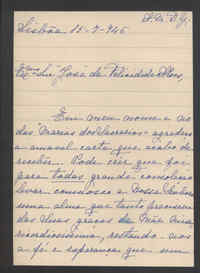 A. M. D. G.
Lisbôa 15-9-945
Exmo Snr José da Felicidade Alves,
Em meu nome e no
das "Marias dos Sacrarios" agradeço
a amavel carta que acabo de
receber. Pode crer que foi
para todas grande consolação
levar comnosco a Nossa Senhora
uma alma que tanto precisava
das Suas graças de Mãe Mise-
ricordiosissima, restando-nos
a fé e esperança que um